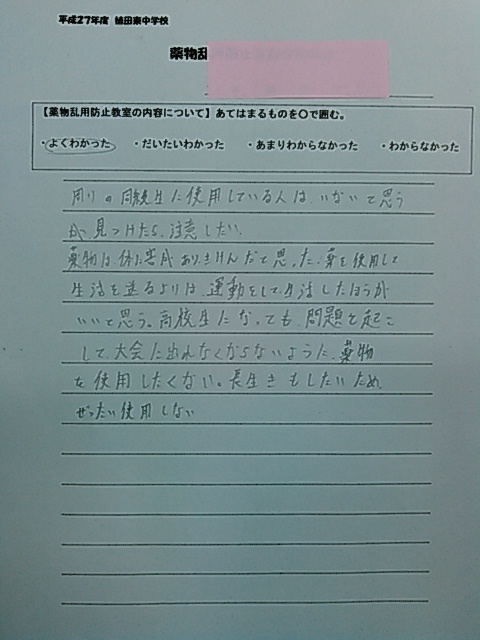 平成27年度 植田東中学校
薬物乱
【薬物乱用防止教室の内容について】あてはまるものを〇で囲む。
・よくわかった ・だいたいわかった ・あまりわからなかった ・わからなかった
周りの同級生に使用している人は、いないと思う
が、見つけたら、注意したい。
薬物は、体に害があり、きけんだと思った。薬を使用して
生活を送るよりは、運動をして生活したほうが
いいと思う。高校生になっても、問題を起こ
して、大会に出れなくならないように、薬物
を使用したくない。長生きもしたいため、
ぜったい使用しない